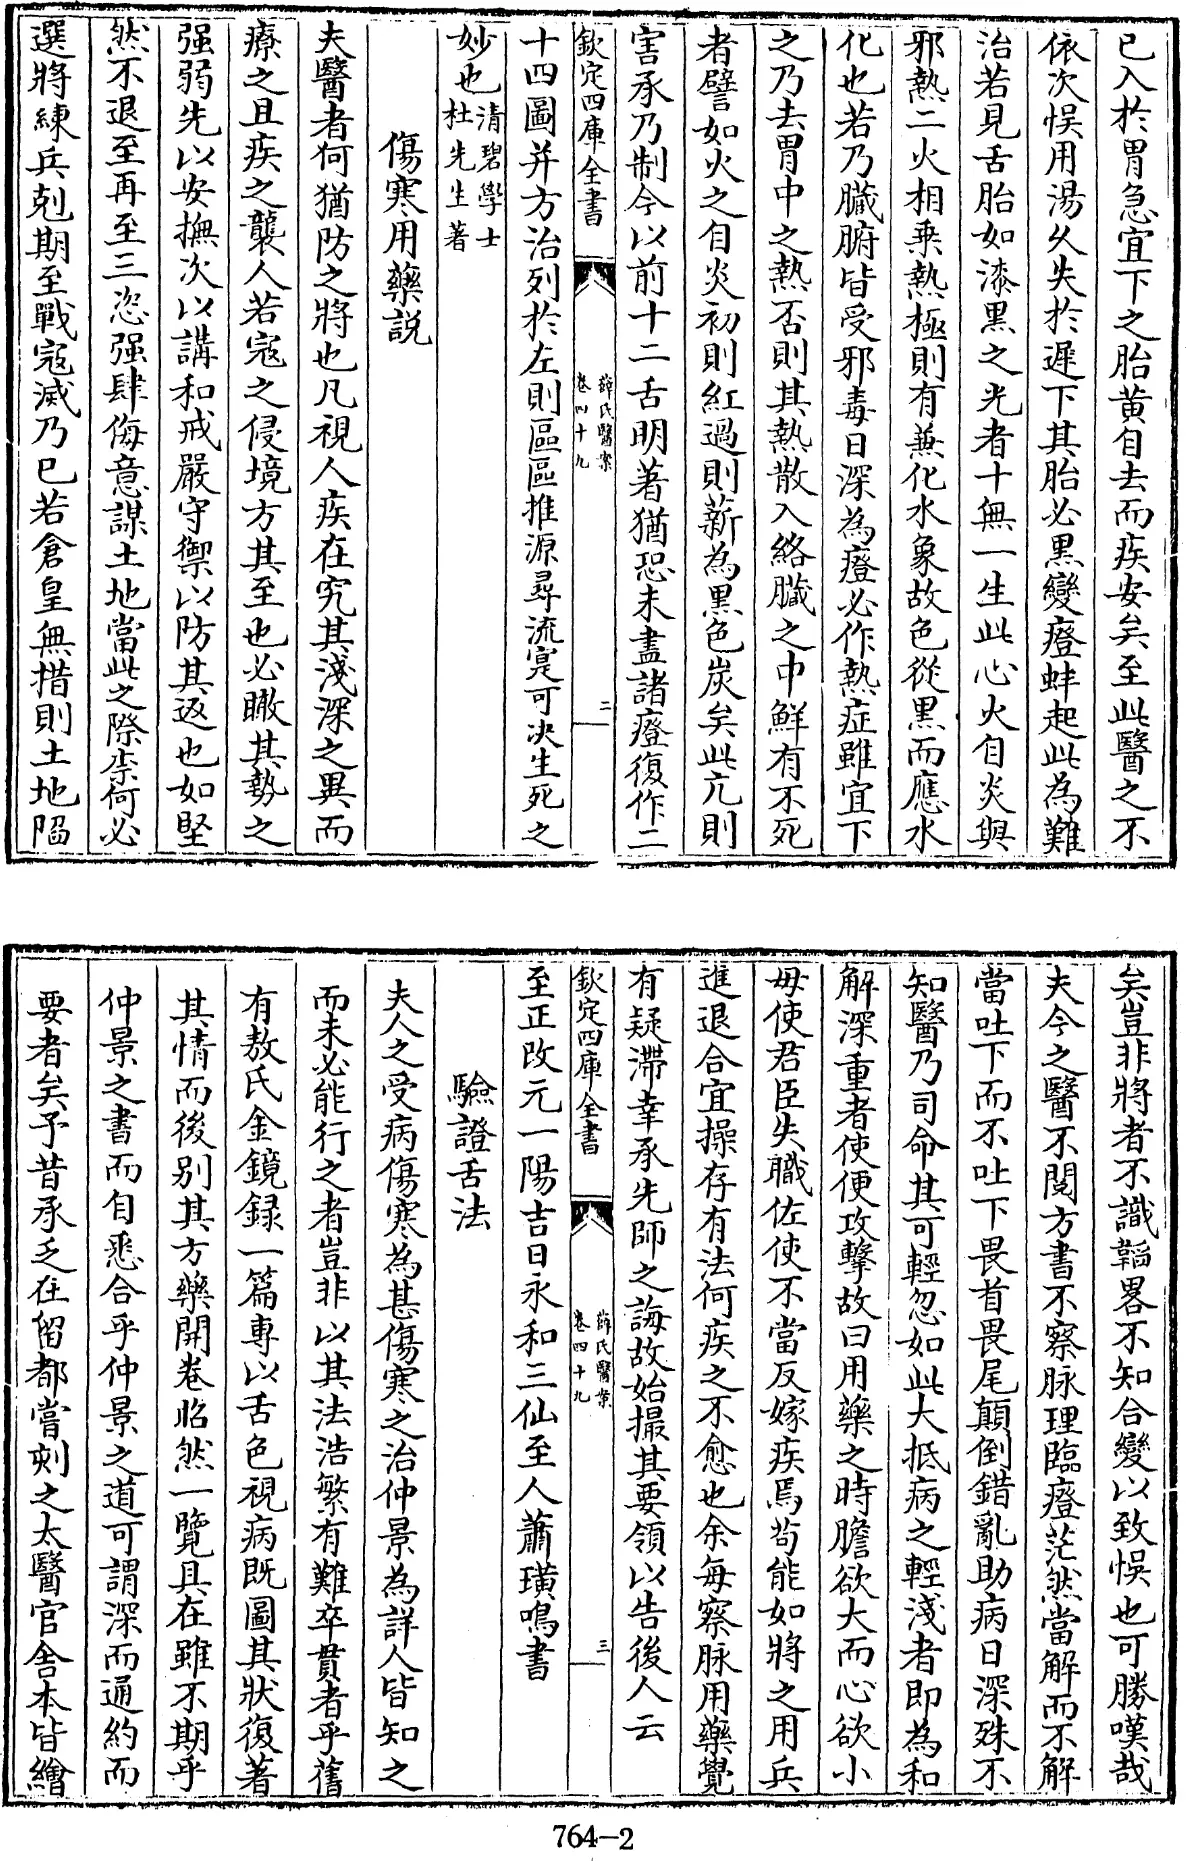 已入於胃急宜下之胎黃自去而疾安矣至此醫之不
依次悞用湯久失於遲下其胎必黒變瘂蚌起此為難
治若見舌胎如漆黒之光者十無一生此心火自炎與
邪熱二火相乗熱極則有兼化水象故色從黒而應水
化也若乃臓腑皆受邪毒日深為證必作熱症雖宜下
之乃去胃中之熱否則其熱散入絡臓之中鮮有不死
者譬如火之自炎初則紅過則薪為黒色炭矣此亢則
害承乃制今以前十二舌明著猶恐未盡諸證復作二
欽定四庫全書
薛氏醫案
卷四十九
二
十四圖并方治列於左則區區推源尋流寔可决生死之
妙也清碧學士
杜先生著
傷寒用藥説
夫醫者何猶防之將也凡視人疾在究其淺深之異而
療之且疾之襲人若冦之侵境方其至也必瞰其勢之
强弱先以安撫次以講和戒嚴守禦以防其返也如堅
然不退至再至三恣强肆侮意謀土地當此之際柰何必
選將練兵剋期至戰冦滅乃已若倉皇無措則土地陷
矣豈非將者不識韜畧不知合變以致悞也可勝嘆哉
夫今之醫不閱方書不察脉理臨證茫然當解而不解
當吐下而不吐下畏首畏尾顛倒錯亂助病日深殊不
知醫乃司命其可輕忽如此大抵病之輕淺者即為和
解深重者使便攻擊故曰用藥之時膽欲大而心欲小
毋使君臣失職佐使不當反嫁疾焉茍能如將之用兵
進退合宜操存有法何疾之不愈也余每察脉用藥覺
有疑滯幸承先師之誨故始撮其要領以告後人云
欽定四庫全書
薛氏醫案
卷四十九
三
至正改元一陽吉日永和三仙至人蕭璜鳴書
驗證舌法
夫人之受病傷寒為甚傷寒之治仲景為詳人皆知之
而未必能行之者豈非以其法浩繁有難卒貫者乎舊
有敖氏金鏡録一篇專以舌色視病既圖其狀復著
其情而後别其方藥開卷昭然一覽具在雖不期乎
仲景之書而自悉合乎仲景之道可謂深而通約而
要者矣予昔承乏在留都嘗刻之太醫官舍本皆繪
764-2